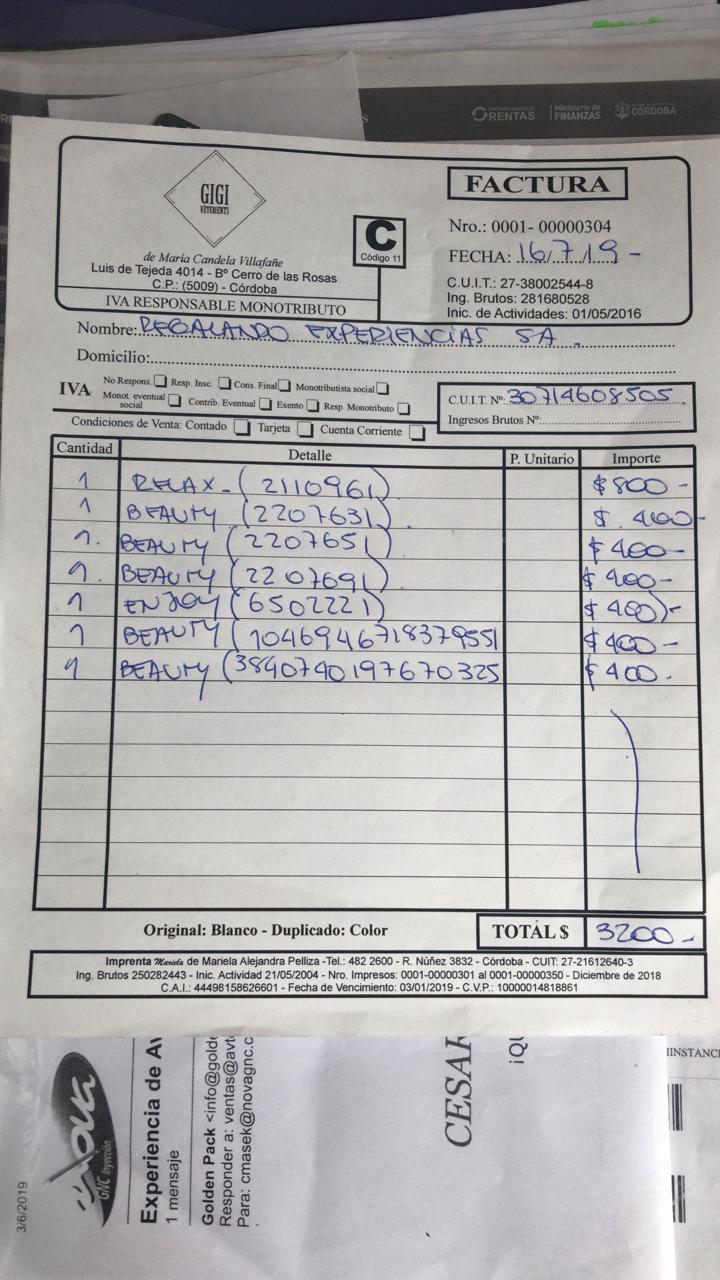 RENTAS
Ministerio de
FINANZAS
CÓRDOBA
GIGI
VETEMENTS
FACTURA
C
Código 11
Nro.: 0001- 00000304
FECHA: 16/7/19-
de María Candela Villafañe
Luis de Tejeda 4014 - Bº Cerro de las Rosas
C.P.: (5009) - Córdoba
IVA RESPONSABLE MONOTRIBUTO
C.U.I.T.: 27-38002544-8
Ing. Brutos: 281680528
Inic. de Actividades: 01/05/2016
Nombre: REGALANDO EXPERIENCIAS SA.
Domicilio:
IVA No Respons. Resp. Insc. Cons. Final Monotributista social
Monot. eventual social Contrib. Eventual Exento Resp. Monotributo
C.U.I.T. Nº: 30714608505.
Ingresos Brutos Nº:
Condiciones de Venta: Contado Tarjeta Cuenta Corriente
Cantidad Detalle P. Unitario Importe
1 RELAX-(2110961) $800-
1 BEAUTY (2207631) $.400-
1. BEAUTY (2207651) $400-
1. BEAUTY (2207691) $400-
1 ENJOY (6502221) $400)-
1 BEAUTY (1046946718379551 $400-
1 BEAUTY (3840740197670325 $400.
Original: Blanco - Duplicado: Color
TOTAL $ 3200-
Imprenta Mariela de Mariela Alejandra Pelliza -Tel.: 482 2600 - R. Núñez 3832 - Córdoba - CUIT: 27-21612640-3
Ing. Brutos 250282443 - Inic. Actividad 21/05/2004 - Nro. Impresos: 0001-00000301 al 0001-00000350 - Diciembre de 2018
C.A.I.: 44498158626601 - Fecha de Vencimiento: 03/01/2019 - C.V.P.: 10000014818861
3/6/2019
nova
GNC Inyección
Experiencia de Av
1 mensaje
Golden Pack <info@golde
Responder a: ventas@avt
Para: cmasek@novagnc.c
CESAR
¡QU
IINSTANC